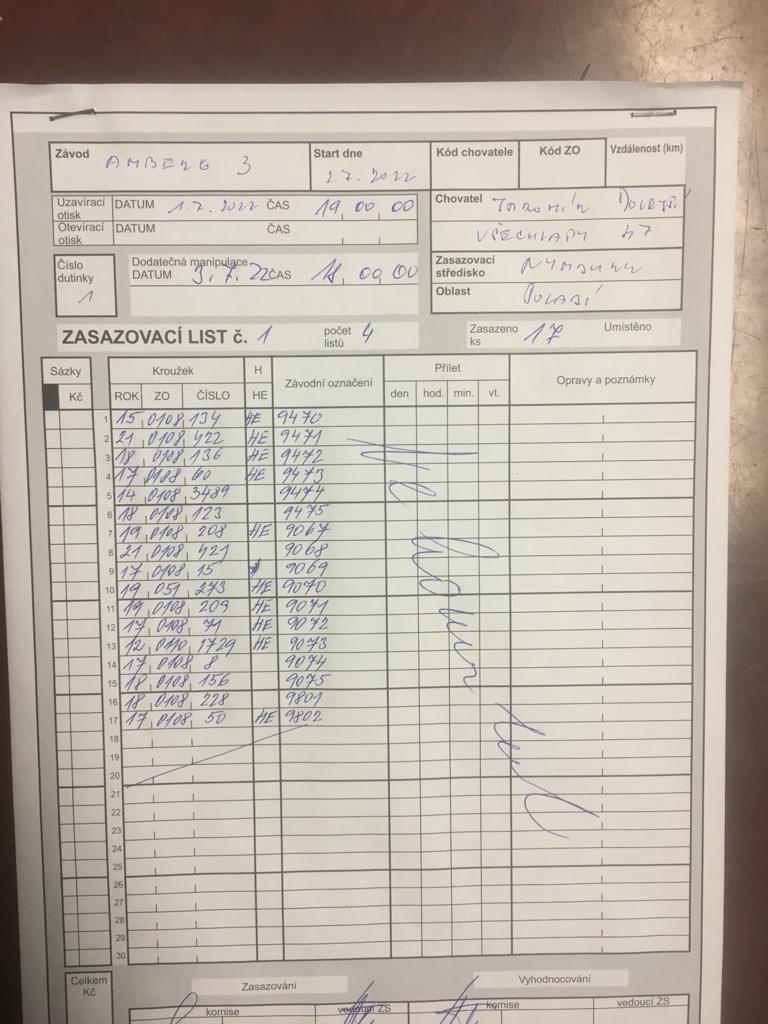 Závod AMBERG 3 Start dne 2.7.2022 Kód chovatele Kód ZO Vzdálenost (km)
Uzavírací otisk DATUM 1.7.2022 ČAS 19 00 00
Otevírací otisk DATUM ČAS
Chovatel
VŠECHLAPY 47
Číslo dutinky 1
Dodatečná manipulace
DATUM 3.7.22 ČAS 18 00 00
Zasazovací středisko NYMBURK
Oblast POLABÍ
ZASAZOVACÍ LIST č. 1 počet listů 4 Zasazeno ks 17 Umístěno
Sázky Kroužek H Závodní označení Přílet Opravy a poznámky
Kč ROK ZO ČÍSLO HE den hod. min. vt.
1 15 0108 134 HE 9470
2 21 0108 422 HE 9471
3 18 0108 136 HE 9472
4 17 0108 60 HE 9473
5 14 0108 3489 9474
6 18 0108 123 9475
7 19 0108 208 HE 9067
8 21 0108 421 9068
9 17 0108 15 9069
10 19 051 273 HE 9070
11 19 0108 209 HE 9071
12 17 0108 71 HE 9072
13 12 0190 1729 HE 9073
14 17 0108 8 9074
15 18 0108 156 9075
16 18 0108 228 9801
17 17 0108 50 HE 9802
18
19
20
21
22
23
24
25
26
27
28
29
30
Celkem Kč Zasazování Vyhodnocování
komise vedoucí ZS komise vedoucí ZS